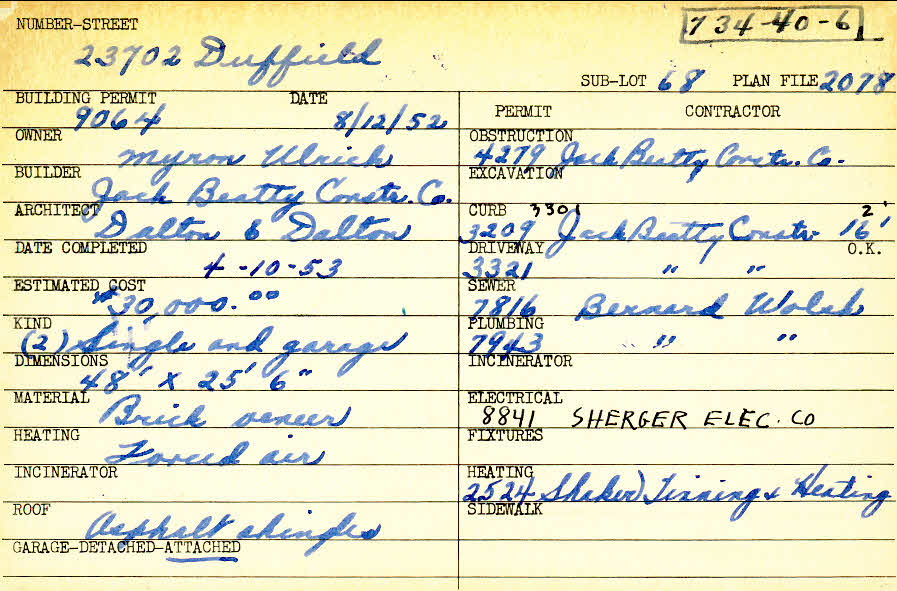 NUMBER-STREET
734-40-6
23702 Duffield
SUB-LOT 68 PLAN FILE 2078
BUILDING PERMIT DATE
9064 8/12/52
OWNER
Myron Ulrich
BUILDER
Jack Beatty Constr. Co.
ARCHITECT
Dalton & Dalton
DATE COMPLETED
4-10-53
ESTIMATED COST
$30,000.00
KIND
(2) Single and garage
DIMENSIONS
48' x 25' 6"
MATERIAL
Brick veneer
HEATING
Forced air
INCINERATOR
ROOF
Asphalt shingles
GARAGE-DETACHED-ATTACHED
PERMIT CONTRACTOR
OBSTRUCTION
4279 Jack Beatty Constr. Co.
EXCAVATION
CURB 3301 2'
3209 Jack Beatty Constr 16'
DRIVEWAY O.K.
3321 " "
SEWER
7816 Bernard Walsh
PLUMBING
7943 " "
INCINERATOR
ELECTRICAL
8841 SHERGER ELEC. CO
FIXTURES
HEATING
2524 Shaker Tinning & Heating
SIDEWALK